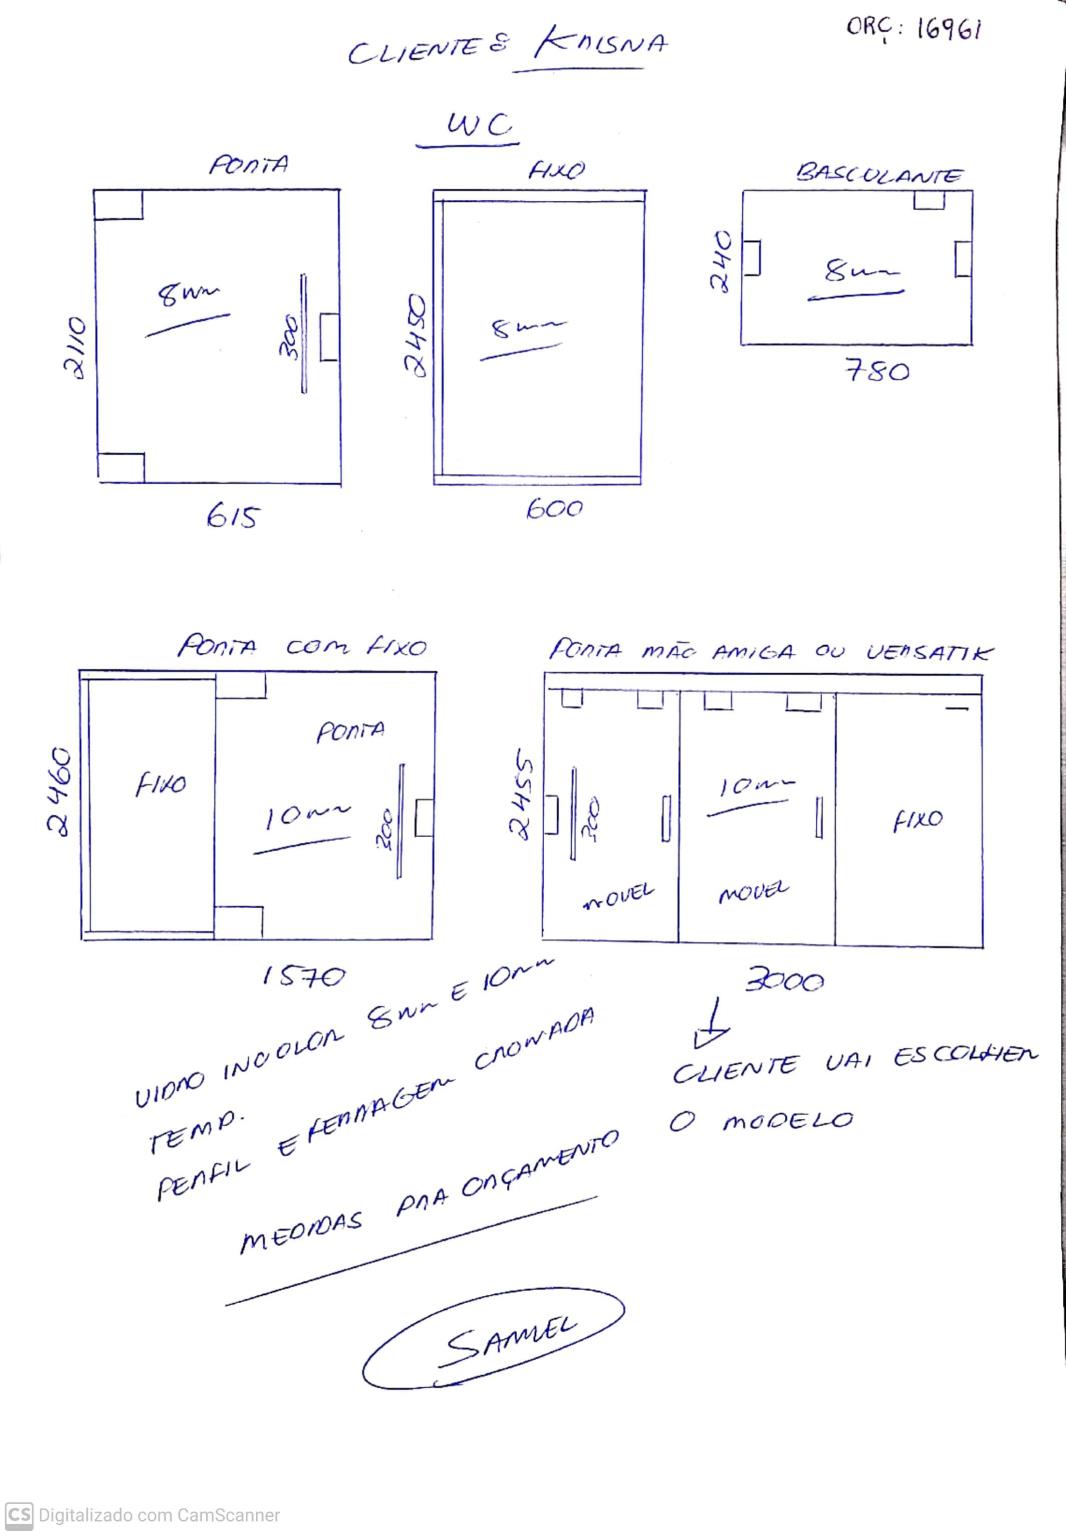 ORÇ: 16961
CLIENTE: KRISNA
WC
PORTA
FIXO
BASCULANTE
8mm
300
2110
615
8mm
2450
600
8mm
240
780
PORTA COM FIXO
PORTA MÃO AMIGA OU VERSATIK
FIXO
PORTA
10mm
300
2460
1570
10mm
300
2455
MOVEL
MOVEL
FIXO
3000
CLIENTE VAI ESCOLHER
O MODELO
VIDRO INCOLOR 8mm E 10mm
TEMP.
PERFIL E FERRAGEM CROMADA
MEDIDAS PRA ORÇAMENTO
SAMUEL
CS Digitalizado com CamScanner